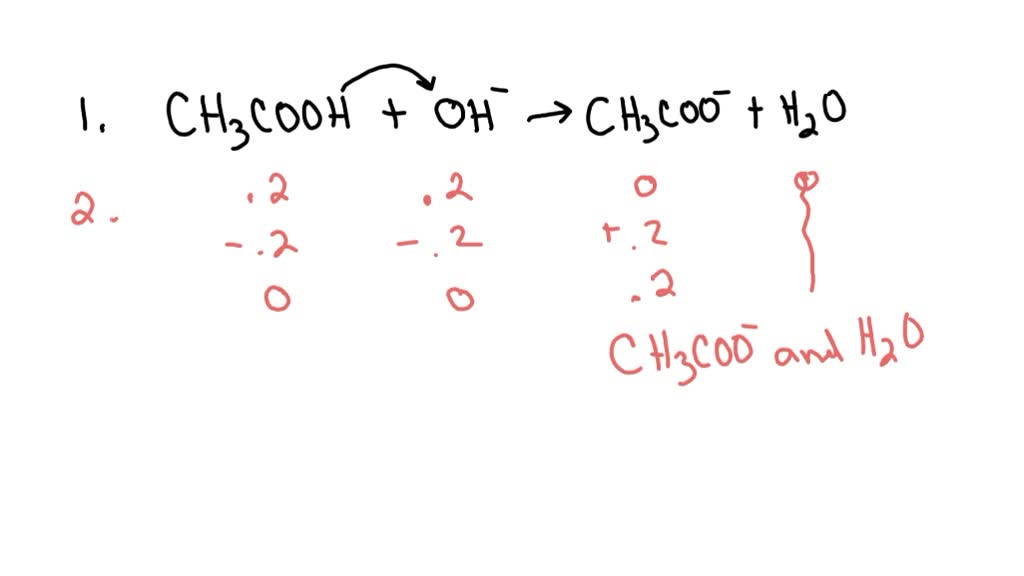 1. CH₃COOH + OH⁻ → CH₃COO⁻ + H₂O
2. .2 .2 0
-.2 -.2 +.2
0 0 .2
CH₃COO⁻ and H₂O